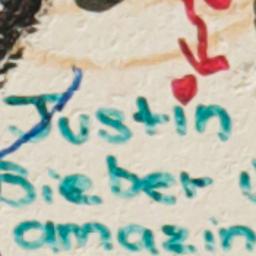 Justin
Bieber
amazin